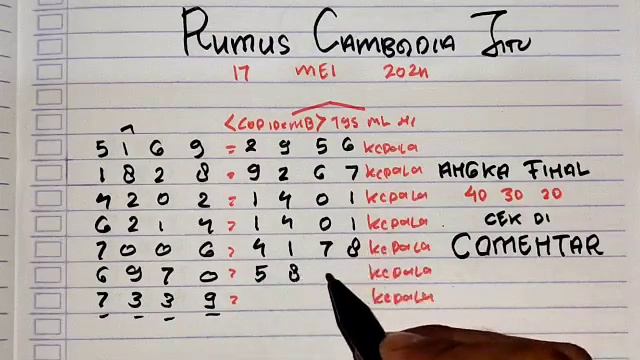 Rumus Cambodia Jitu
17 MEI 2024
5 1 6 9 = 2 9 5 6 kepala
1 8 2 8 = 9 2 6 7 kepala ANGKA FINAL
4 2 0 2 = 1 4 0 1 kepala 40 30 20
6 2 1 4 = 1 4 0 1 kepala CEK DI
7 0 0 6 = 4 1 7 8 kepala COMENTAR
6 9 7 0 = 5 8 kepala
7 3 3 9 = kepala